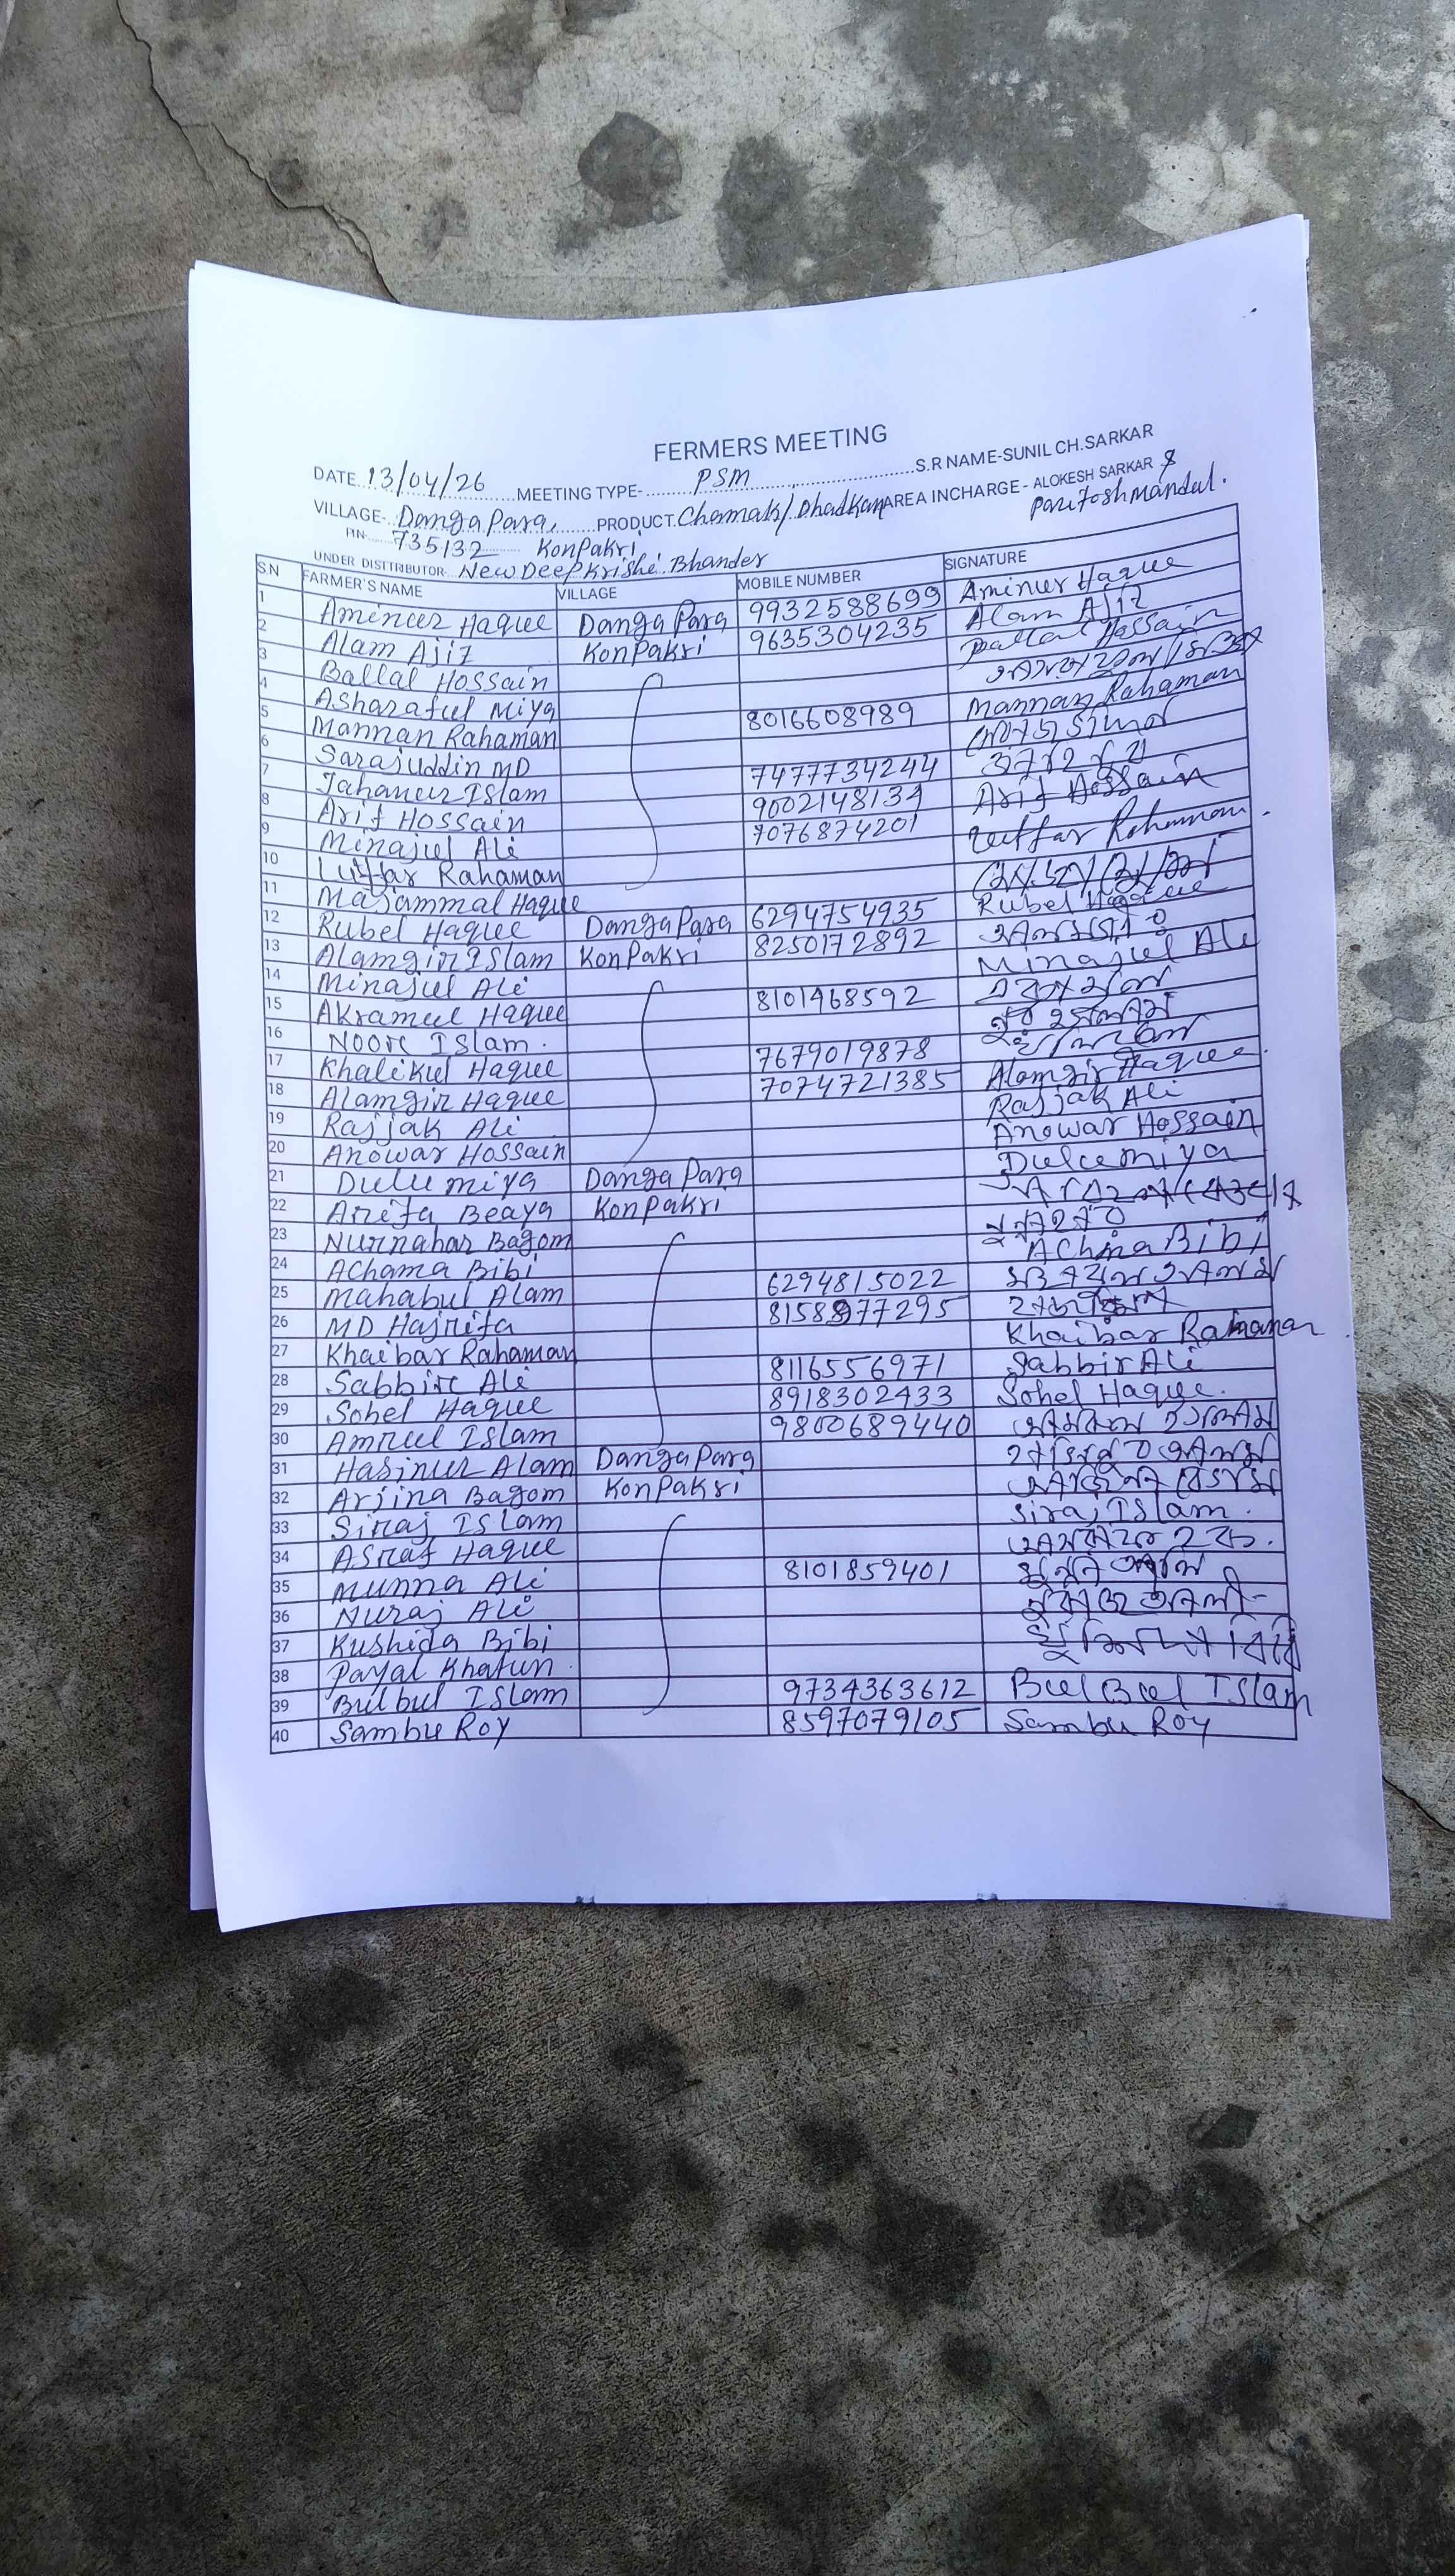 FERMERS MEETING
DATE 13/04/26 MEETING TYPE- PSM S.R NAME-SUNIL CH.SARKAR
VILLAGE- DangaPara, PRODUCT. Chamak/Dhadkan AREA INCHARGE - ALOKESH SARKAR & Paritosh Mandal.
PIN 735132 KonPakri
UNDER DISTTRIBUTOR- New Deep Krishi Bhander
S.N FARMER'S NAME VILLAGE MOBILE NUMBER SIGNATURE
1 Aminur Haque DangaPara 9932588699 Aminur Haque
2 Alam Ajiz KonPakri 9635304235 Alam Ajiz
3 Ballal Hossain Ballal Hossain
4 Asharaful Miya
5 Mannan Rahaman 8016608989 Mannan Rahaman
6 Sarajuddin MD
7 Jahanur Islam 7477734244
8 Arif Hossain 9002148134 Arif Hossain
9 Minajul Ali 7076874201
10 Lutfar Rahaman Lutfar Rahaman
11 Majammal Haque
12 Rubel Haque DangaPara 6294754935 Rubel Haque
13 Alamgir Islam KonPakri 8250172892
14 Minajul Ali Minajul Ali
15 Akramul Haque 8101468592
16 Noor Islam.
17 Khalikul Haque 7679019878
18 Alamgir Haque 7074721385 Alamgir Haque
19 Rajjak Ali Rajjak Ali
20 Anowar Hossain Anowar Hossain
21 Dulu miya DangaPara Dulu miya
22 Arifa Beaya KonPakri
23 Nurnahar Bagom
24 Achama Bibi AChina Bibi
25 Mahabul Alam 6294815022
26 MD Hajrifa
27 Khaibar Rahaman Khaibar Rahaman
28 Sabbir Ali 8116556971 Sabbir Ali
29 Sohel Haque 8918302433 Sohel Haque.
30 Amrul Islam 9800689440
31 Hasinur Alam DangaPara
32 Arjina Bagom KonPakri
33 Siraj Islam Siraj Islam.
34 Asraf Haque
35 Munna Ali 8101859401
36 Nuraj Ali
37 Kushida Bibi
38 Payal Khatun
39 Bulbul Islam 9734363612 Bul Bul Islam
40 Sambu Roy 8597079105 Sambu Roy